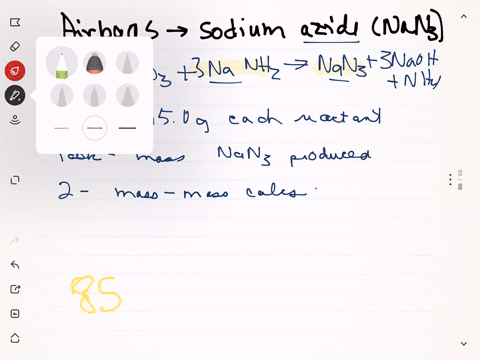 Airbags → sodium azide (NaN3)
O3 + 3Na NH2 → NaN3 + 3NaOH
+ NH3
15.0g each reactant
Task - mass NaN3 produced
2 - mass-mass calcs.
85